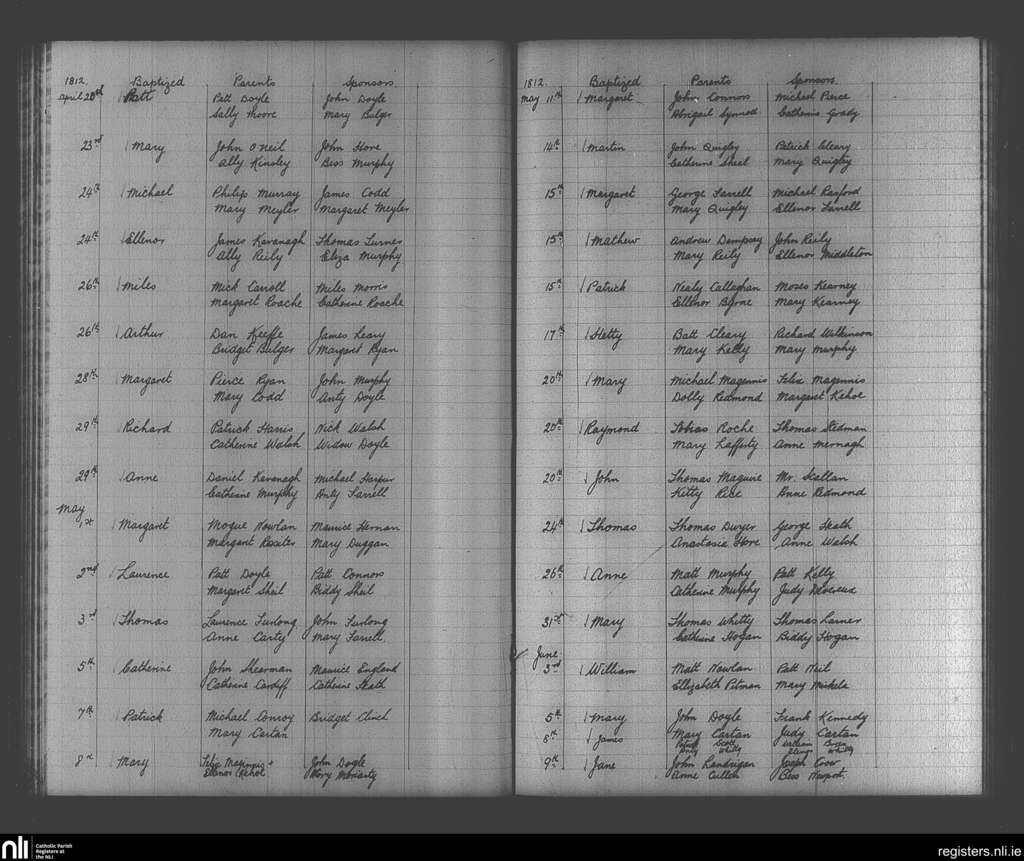 1812. Baptized Parents Sponsors
April 20th Patt Patt Doyle John Doyle
Sally Moore Mary Bulger
23rd Mary John O'Neil John Hore
Ally Kinsley Bess Murphy
24th Michael Philip Murray James Codd
Mary Meyler Margaret Meyler
24th Ellenor James Kavanagh Thomas Turner
Ally Reily Eliza Murphy
26th Miles Mick Carroll Miles Morris
Margaret Roache Catherine Roache
26th Arthur Dan Keeffe James Leary
Bridget Bulger Margaret Ryan
28th Margaret Pierce Ryan John Murphy
Mary Codd Anty Doyle
29th Richard Patrick Harris Nick Walsh
Catherine Walsh Widow Doyle
29th Anne Daniel Kavanagh Michael Harpur
Catherine Murphy Anty Farrell
May
1st Margaret Mogue Nowlan Maurice Hernan
Margaret Rositer Mary Duggan
2nd Laurence Patt Doyle Patt Connors
Margaret Sheil Biddy Sheil
3rd Thomas Laurence Furlong John Furlong
Anne Carty Mary Farrell
5th Catherine John Shearman Maurice England
Catherine Cardiff Catherine Heath
7th Patrick Michael Conroy Bridget Clinch
Mary Cartan
8th Mary Felix John Doyle
Elenor Kehoe Mary Moriarty
1812. Baptized Parents Sponsors
May 11th Margaret John Connors Michael Pierce
Abrigail Synnott Catherine Grady
14th Martin John Quigley Patrick Cleary
Catherine Sheal Mary Quigley
15th Margaret George Farrell Michael Raxford
Mary Quigley Ellenor Farrell
15th Mathew Andrew Dempsey John Reily
Mary Reily Ellenor Middleton
15th Patrick Nealy Callaghan Moses Kearney
Ellenor Byrne Mary Kearney
17th Hetty Batt Cleary Richard Wilkinson
Mary Kelly Mary Murphy
20th Mary Michael Magennis Felix Magennis
Dolly Redmond Margaret Kehoe
20th Raymond Tobias Roche Thomas Stedman
Mary Lafferty Anne Mernagh
20th John Thomas Maguire Mr. Scallan
Kitty Rice Anne Redmond
24th Thomas Thomas Dwyer George Heath
Anastasia Hore Anne Walsh
26th Anne Matt Murphy Patt Kelly
Catherine Murphy Judy Devereux
31st Mary Thomas Whitty Thomas Larner
Catherine Hogan Biddy Hogan
June
3rd William Matt Nowlan Patt Neil
Ellizabeth Pitman Mary Mickels
5th Mary John Doyle Frank Kennedy
Mary Cartan Judy Cartan
8th James
9th Jane John Landrigan Joseph Crow
Anne Cullen Bess Newport
nli Catholic Parish
Registers at
the NLI
registers.nli.ie